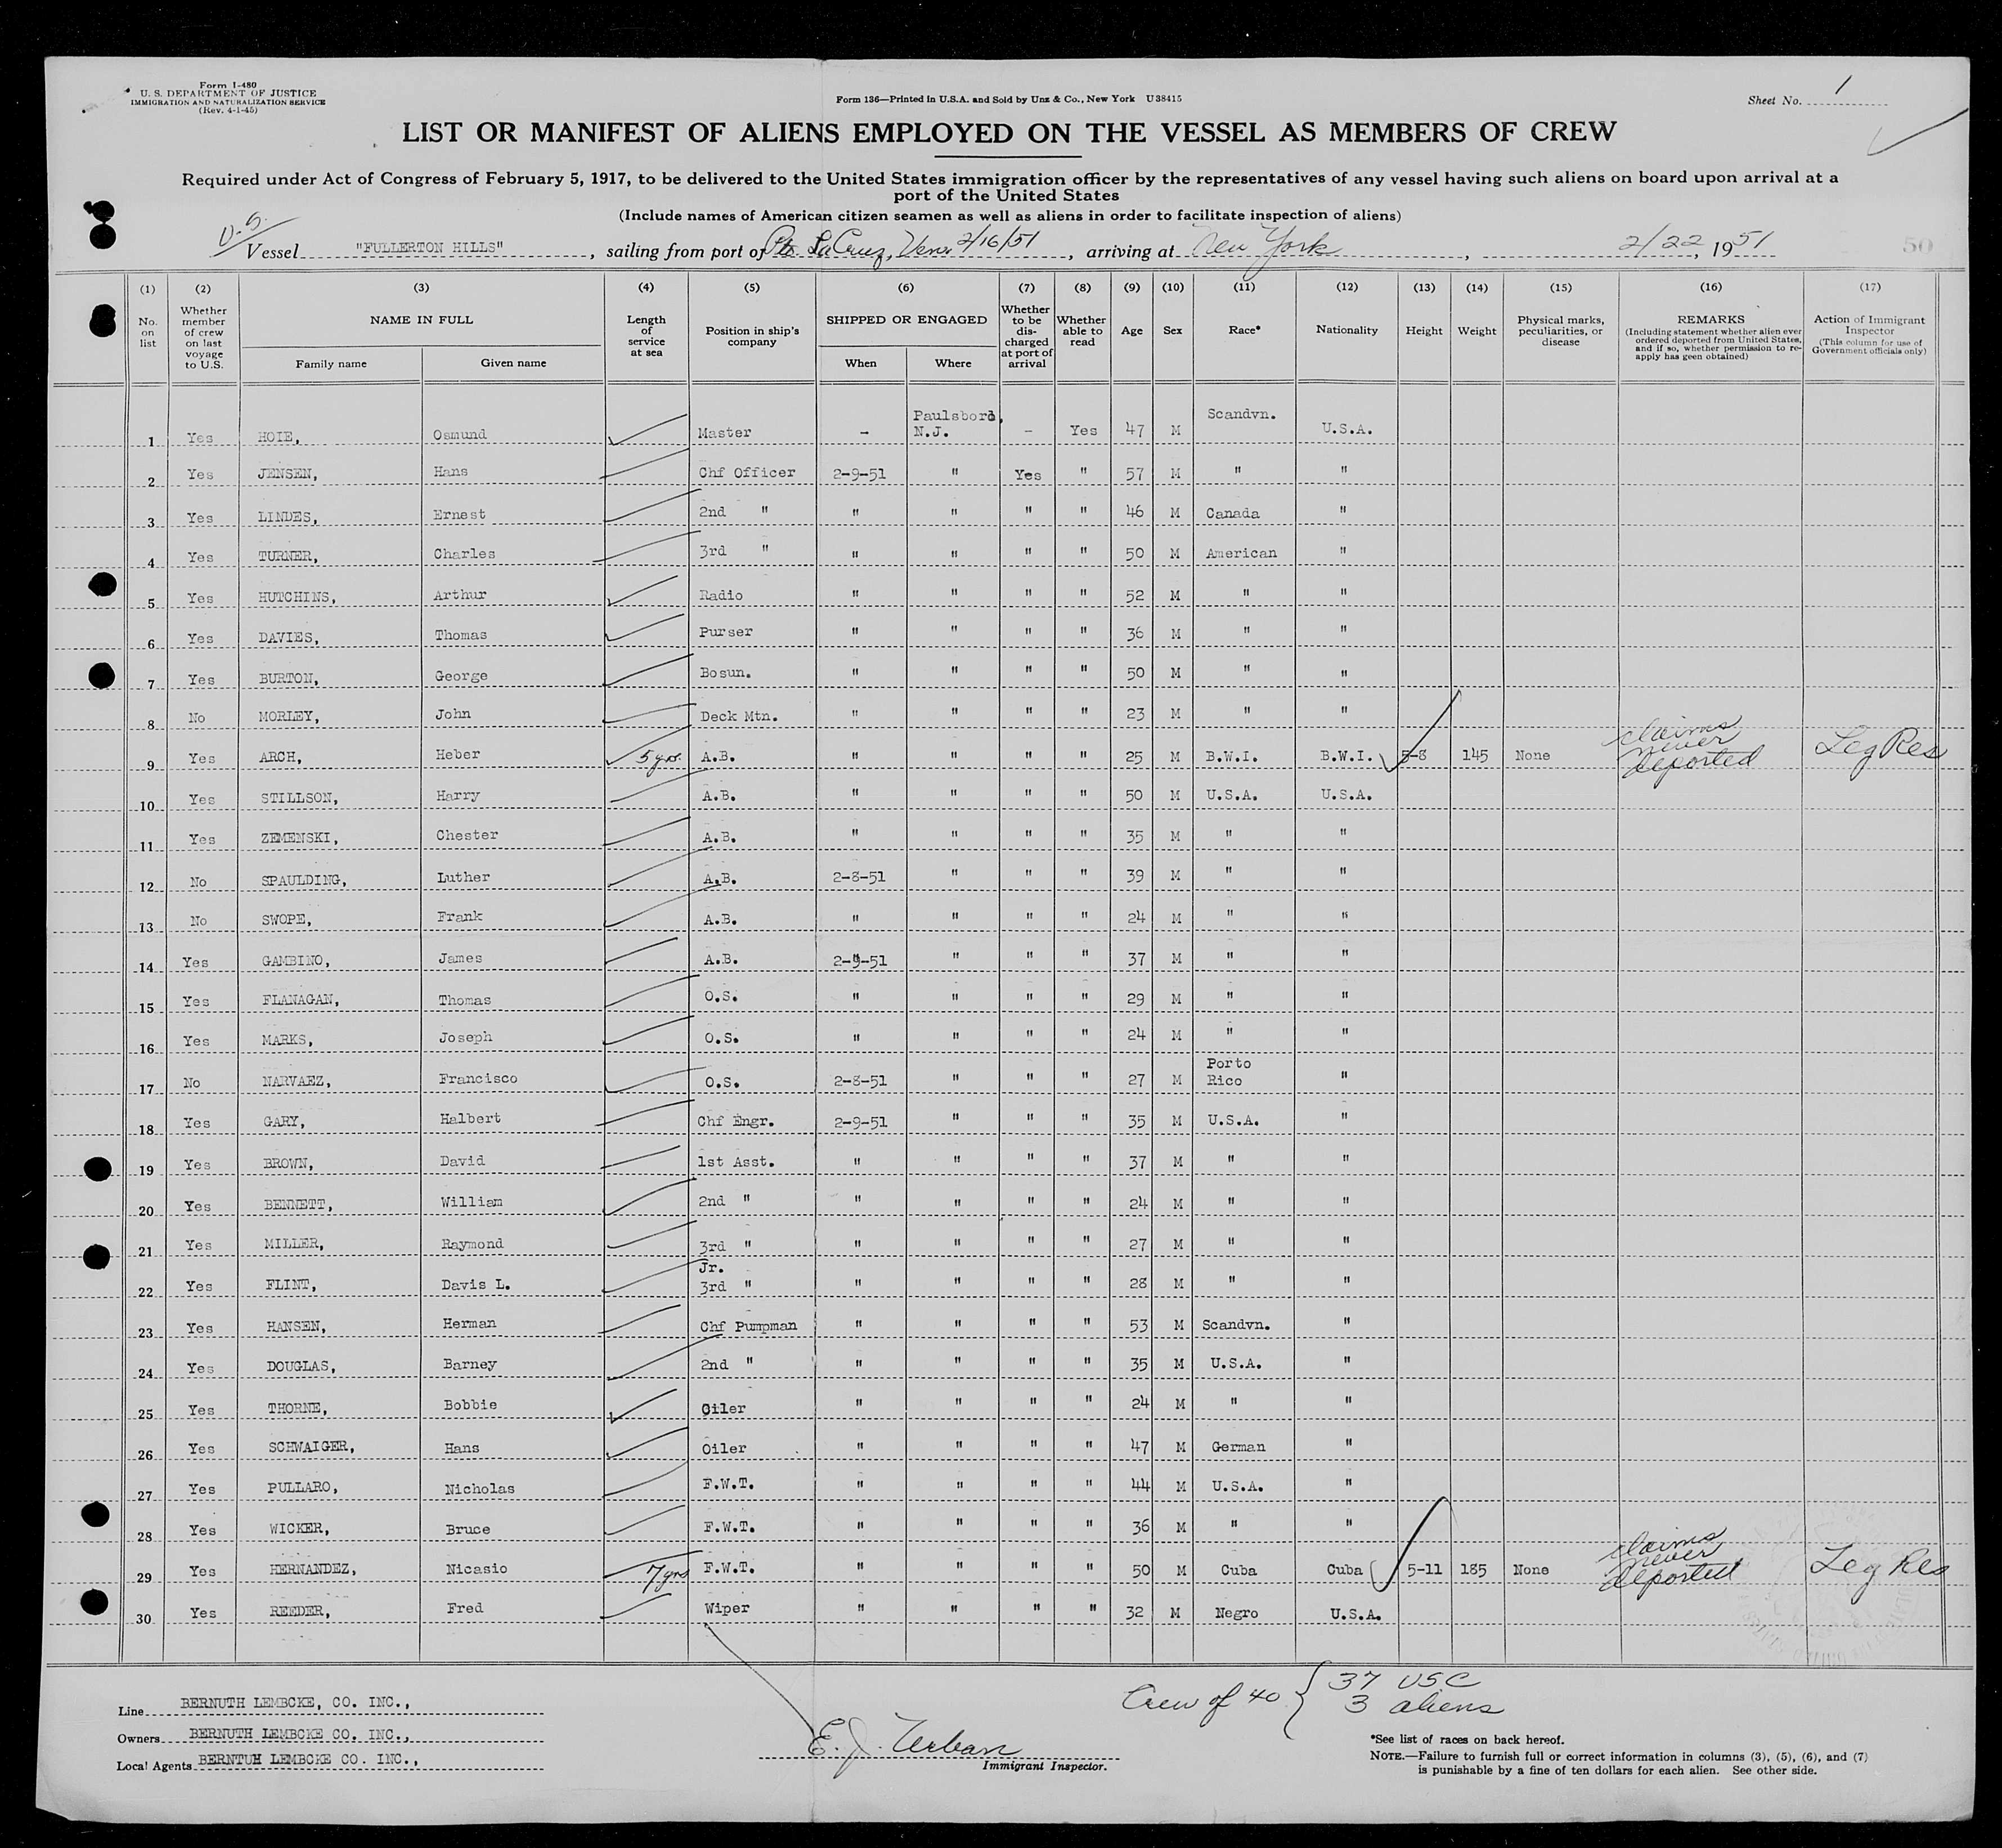 Form I-480
U. S. DEPARTMENT OF JUSTICE
IMMIGRATION AND NATURALIZATION SERVICE
(Rev. 4-1-45)
Form 136—Printed in U.S.A. and Sold by Unz & Co., New York U38415
Sheet No. 1
LIST OR MANIFEST OF ALIENS EMPLOYED ON THE VESSEL AS MEMBERS OF CREW
Required under Act of Congress of February 5, 1917, to be delivered to the United States immigration officer by the representatives of any vessel having such aliens on board upon arrival at a
port of the United States
(Include names of American citizen seamen as well as aliens in order to facilitate inspection of aliens)
U.S.
Vessel "FULLERTON HILLS", sailing from port of Pto La Cruz, Venz 2/16/51, arriving at New York, 2/22, 1951
50
(1) (2) (3) (4) (5) (6) (7) (8) (9) (10) (11) (12) (13) (14) (15) (16) (17)
No. on list
Whether member of crew on last voyage to U.S.
NAME IN FULL
Family name Given name
Length of service at sea
Position in ship's company
SHIPPED OR ENGAGED
When Where
Whether to be dis-charged at port of arrival
Whether able to read
Age
Sex
Race*
Nationality
Height
Weight
Physical marks, peculiarities, or disease
REMARKS
(Including statement whether alien ever ordered deported from United States, and if so, whether permission to re-apply has geen obtained)
Action of Immigrant Inspector
(This column for use of Government officials only)
1 Yes HOIE, Osmund Master - Paulsboro, N.J. - Yes 47 M Scandvn. U.S.A.
2 Yes JENSEN, Hans Chf Officer 2-9-51 " Yes " 57 M " "
3 Yes LINDES, Ernest 2nd " " " " " 46 M Canada "
4 Yes TURNER, Charles 3rd " " " " " 50 M American "
5 Yes HUTCHINS, Arthur Radio " " " " 52 M " "
6 Yes DAVIES, Thomas Purser " " " " 36 M " "
7 Yes BURTON, George Bosun. " " " " 50 M " "
8 No MORLEY, John Deck Mtn. " " " " 23 M " "
9 Yes ARCH, Heber 5 yrs. A.B. " " " " 25 M B.W.I. B.W.I. 5-8 145 None claims never deported Leg Res
10 Yes STILLSON, Harry A.B. " " " " 50 M U.S.A. U.S.A.
11 Yes ZEMENSKI, Chester A.B. " " " " 35 M " "
12 No SPAULDING, Luther A.B. 2-8-51 " " " 39 M " "
13 No SWOPE, Frank A.B. " " " " 24 M " "
14 Yes GAMBINO, James A.B. 2-9-51 " " " 37 M " "
15 Yes FLANAGAN, Thomas O.S. " " " " 29 M " "
16 Yes MARKS, Joseph O.S. " " " " 24 M " "
17 No NARVAEZ, Francisco O.S. 2-8-51 " " " 27 M Porto Rico "
18 Yes GARY, Halbert Chf Engr. 2-9-51 " " " 35 M U.S.A. "
19 Yes BROWN, David 1st Asst. " " " " 37 M " "
20 Yes BENNETT, William 2nd " " " " " 24 M " "
21 Yes MILLER, Raymond 3rd " " " " " 27 M " "
22 Yes FLINT, Davis L. Jr. 3rd " " " " " 28 M " "
23 Yes HANSEN, Herman Chf Pumpman " " " " 53 M Scandvn. "
24 Yes DOUGLAS, Barney 2nd " " " " " 35 M U.S.A. "
25 Yes THORNE, Bobbie Oiler " " " " 24 M " "
26 Yes SCHWAIGER, Hans Oiler " " " " 47 M German "
27 Yes PULLARO, Nicholas F.W.T. " " " " 44 M U.S.A. "
28 Yes WICKER, Bruce F.W.T. " " " " 36 M " "
29 Yes HERNANDEZ, Nicasio 7 yrs F.W.T. " " " " 50 M Cuba Cuba 5-11 185 None claims never deported Leg Res
30 Yes REEDER, Fred Wiper " " " " 32 M Negro U.S.A.
Line BERNUTH LEMBCKE, CO. INC.,
Owners BERNUTH LEMBCKE CO. INC.,
Local Agents BERNTUH LEMBCKE CO. INC.,
E. J. Urban
Immigrant Inspector.
Crew of 40 { 37 USC
3 aliens
*See list of races on back hereof.
NOTE.—Failure to furnish full or correct information in columns (3), (5), (6), and (7)
is punishable by a fine of ten dollars for each alien. See other side.